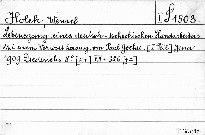 Holek, Wenzel
I S 1503.
Lebensgang eines deutsch-tschechischen Handarbeiters
Mit einem Vorwort herausg. von Paul Göhre. [2. Tsd.] Jena
1909 Diederichs. 8° 326